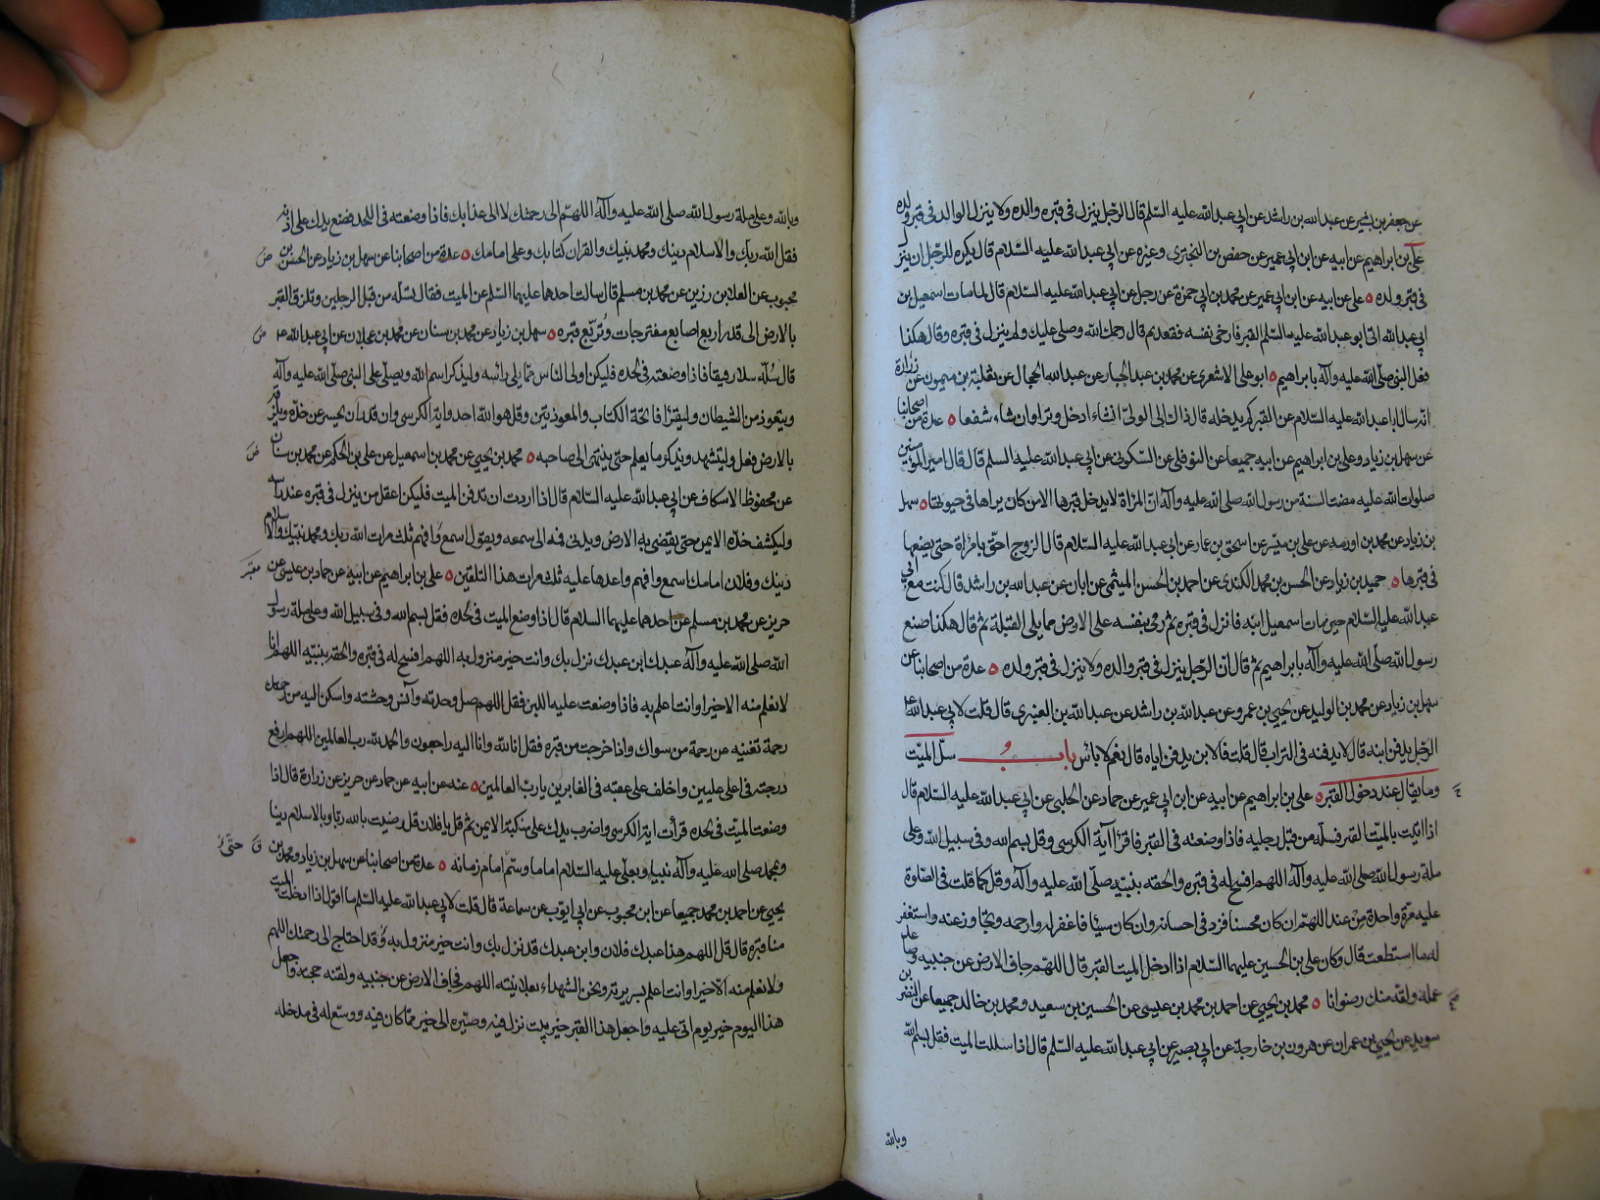 عن جعفر بن بشير عن عبدالله بن راشد عن ابي عبدالله عليه السّلم قال الرّجل ينزل في قبره والده ولا ينزل الوالد في قبر ولده
علي بن ابراهيم عن ابيه عن ابن ابي عمير عن حفص بن البختري وغيره عن ابي عبدالله عليه السّلام قال يكره للرّجل ان ينزل
في قبر ولده ٥ علي عن ابيه عن ابن ابي عمير عن محمد بن ابي حمزة عن رجل عن ابي عبدالله عليه السّلام قال لما مات اسمعيل بن
ابي عبدالله اتى ابو عبدالله عليه السلم القبر فارخى نفسه فقعد ثم قال رحمك الله وصلى عليك ولم ينزل في قبره وقال هكذا
فعل النبي صلّى الله عليه وآله بابراهيم ٥ ابو علي الاشعري عن محمد بن عبد الجبار عن عبدالله الحجال عن ثعلبة بن ميمون عن زرارة
انه سال ابا عبدالله عليه السّلام عن القبر كم يدخله قال ذاك الى الوليّ انشاء ادخل وترا وان شاء شفعا ٥ عدة من اصحابنا
عن سهل بن زياد وعلي بن ابراهيم عن ابيه جميعا عن النوفلي عن السكوني عن ابي عبدالله عليه السلم قال قال امير المؤمنين
صلوات الله عليه مضت السنة من رسول الله صلى الله عليه وآله انّ المرأة لا يدخل قبرها الا من كان يراها في حيوتها ٥ سهل
بن زياد عن محمد بن اورمه عن علي بن ميسر عن اسحق بن عمار عن ابي عبدالله عليه السّلام قال الزوج احقّ بامرأة حتى يضعها
في قبرها ٥ حميد بن زياد عن الحسن بن محمد الكندي عن احمد بن الحسن الميثمي عن ابان عن عبدالله بن راشد قال كنت مع ابي
عبدالله عليه السّلام حين مات اسمعيل ابنه فانزل في قبره ثم رمى بنفسه على الارض مما يلي القبلة ثم قال هكذا صنع
رسول الله صلّى الله عليه وآله بابراهيم ثم قال انّ الرّجل ينزل في قبر والده ولا ينزل في قبر ولده ٥ عدة من اصحابنا عن
سهل بن زياد عن محمد بن الوليد عن يحيى بن عمرو عن عبدالله بن راشد عن عبدالله بن العنبري قال قلت لابي عبدالله ع
الرّجل يدفن ابنه قال لا يدفنه في التراب قال قلت فالابن يدفن اباه قال نعم لا باس باب سلّ الميّت
وما يقال عند دخول القبر ٥ علي بن ابراهيم عن ابيه عن ابن ابي عمير عن حماد عن الحلبي عن ابي عبدالله عليه السّلام قال
اذا اتيت بالميّت القبر فسلّه من قبل رجليه فاذا وضعته في القبر فاقرأ آية الكرسي وقل بسم الله وفي سبيل الله وعلى
ملة رسول الله صلى الله عليه وآله اللهم افسح له في قبره والحقه بنبيّه صلّى الله عليه وآله وقل كما قلت في الصّلوة
عليه مرّة واحدة من عند اللهمّ ان كان محسنا فزد في احسانه وان كان سيئا فاغفر له وارحمه وتجاوز عنه واستغفر
له ما استطعت قال وكان علي بن الحسين عليهما السّلام اذا ادخل الميت القبر قال اللهمّ جاف الارض عن جنبيه وصاعد
عمله ولقّه منك رضوانا ٥ محمد بن يحيى عن احمد بن محمد بن عيسى عن الحسين بن سعيد ومحمد بن خالد جميعا عن النضر بن
سويد عن يحيى بن عمران عن هرون بن خارجة عن ابي بصير عن ابي عبدالله عليه السّلم قال اذا سللت الميت فقل بسم الله
وبالله
وبالله وعلى ملة رسول الله صلى الله عليه وآله اللهمّ الى رحمتك لا الى عذابك فاذا وضعته في اللحد فضع يدك على اذنه
فقل الله ربك والاسلام دينك ومحمد نبيك والقران كتابك وعلي امامك ٥ عدة من اصحابنا عن سهل بن زياد عن الحسن بن
محبوب عن العلا بن رزين عن محمد بن مسلم قال سالت احدهما عليهما السّلم عن الميت فقال تسلّه من قبل الرجلين وتلزق القبر
بالارض الى قدر اربع اصابع مفترجات وتربّع قبره ٥ سهل بن زياد عن محمد بن سنان عن محمد بن عجلان عن ابي عبدالله ع
قال سلّه سلا رفيقا فاذا وضعته في لحده فليكن اولى الناس ممّا يلي رأسه وليذكر اسم الله ويصلّي على النبي صلّى الله عليه وآله
ويتعوذ من الشيطان وليقرأ فاتحة الكتاب والمعوذتين وقل هو الله احد واية الكرسي وان قدر ان يحسر عن خدّه ويلزقه
بالارض فعل وليتشهد ويذكر ما يعلم حتى ينتهى الى صاحبه ٥ محمد بن يحيى عن محمد بن اسمعيل عن علي بن الحكم عن محمد بن سنان
عن محفوظ الاسكاف عن ابي عبدالله عليه السّلام قال اذا اردت ان تدفن الميت فليكن اعقل من ينزل في قبره عند رأسه
وليكشف خدّه الايمن حتى يفضى به الارض ويدنى فمه الى سمعه ويقول اسمع وافهم ثلث مرات الله ربك ومحمد نبيّك والاسلام
دينك وفلان امامك اسمع وافهم واعدها عليه ثلث مرات هذا التلقين ٥ علي بن ابراهيم عن ابيه عن حماد بن عيسى عن
حريز عن محمد بن مسلم عن احدهما عليهما السلام قال اذا وضع الميت في لحده فقل بسم الله وفي سبيل الله وعلى ملة رسول
الله صلى الله عليه وآله عبدك ابن عبدك نزل بك وانت خير منزول به اللهم افسح له في قبره والحقه بنبيّه اللهم انا
لا نعلم منه الا خيرا وانت اعلم به فاذا وضعت عليه اللبن فقل اللهم صل وحدته وآنس وحشته واسكن اليه من رحمتك
رحمة تغنيه عن رحمة من سواك واذا خرجت من قبره فقل انا لله وانا اليه راجعون والحمد لله رب العالمين اللهم ارفع
درجته في اعلى عليين واخلف على عقبه في الغابرين يا ربّ العالمين ٥ عنه عن ابيه عن حماد عن حريز عن زرارة قال اذا
وضعت الميّت في لحده قرأت اية الكرسي واضرب يدك على منكبه الايمن ثم قل يا فلان قل رضيت بالله ربا وبالاسلام دينا
وبمحمد صلى الله عليه وآله نبيا وبعلي عليه السّلام اماما وسمّ امام زمانه ٥ عدة من اصحابنا عن سهل بن زياد ومحمد بن
يحيى عن احمد بن محمد جميعا عن ابن محبوب عن ابي ايوب عن سماعة قال قلت لابي عبدالله عليه السّلم ما اقول اذا ادخلت الميت
منا قبره قال قل اللهم هذا عبدك فلان وابن عبدك قد نزل بك وانت خير منزول به وقد احتاج الى رحمتك اللهم
ولا نعلم منه الا خيرا وانت اعلم بسريرته ونحن الشهداء بعلانيته اللهم فجاف الارض عن جنبيه ولقنه حجته واجعل
هذا اليوم خير يوم اتى عليه واجعل هذا القبر خير بيت نزل فيه وصيّره الى خير ممّا كان فيه ووسّع له في مدخله